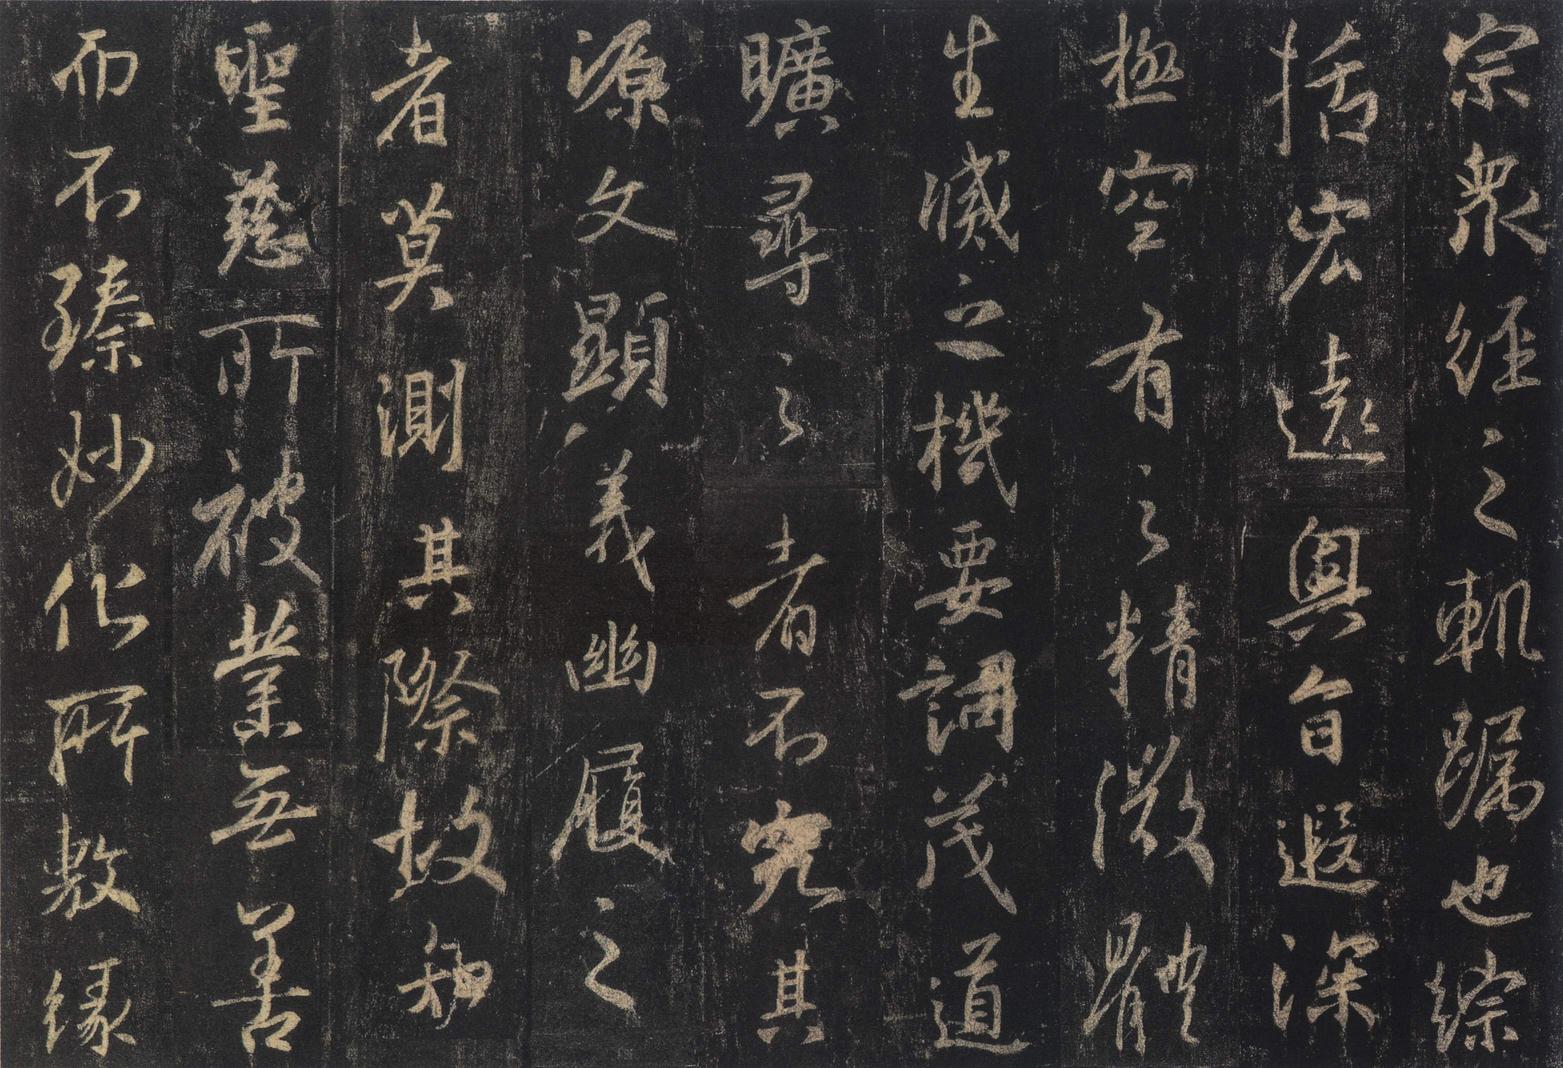 宗衆經之軌躅也綜
括宏遠奧旨遐深
極空有之精微體
生滅之機要詞茂道
曠尋之者不究其
源文顯義幽履之
者莫測其際故知
聖慈所被業無善
而不臻妙化所敷緣